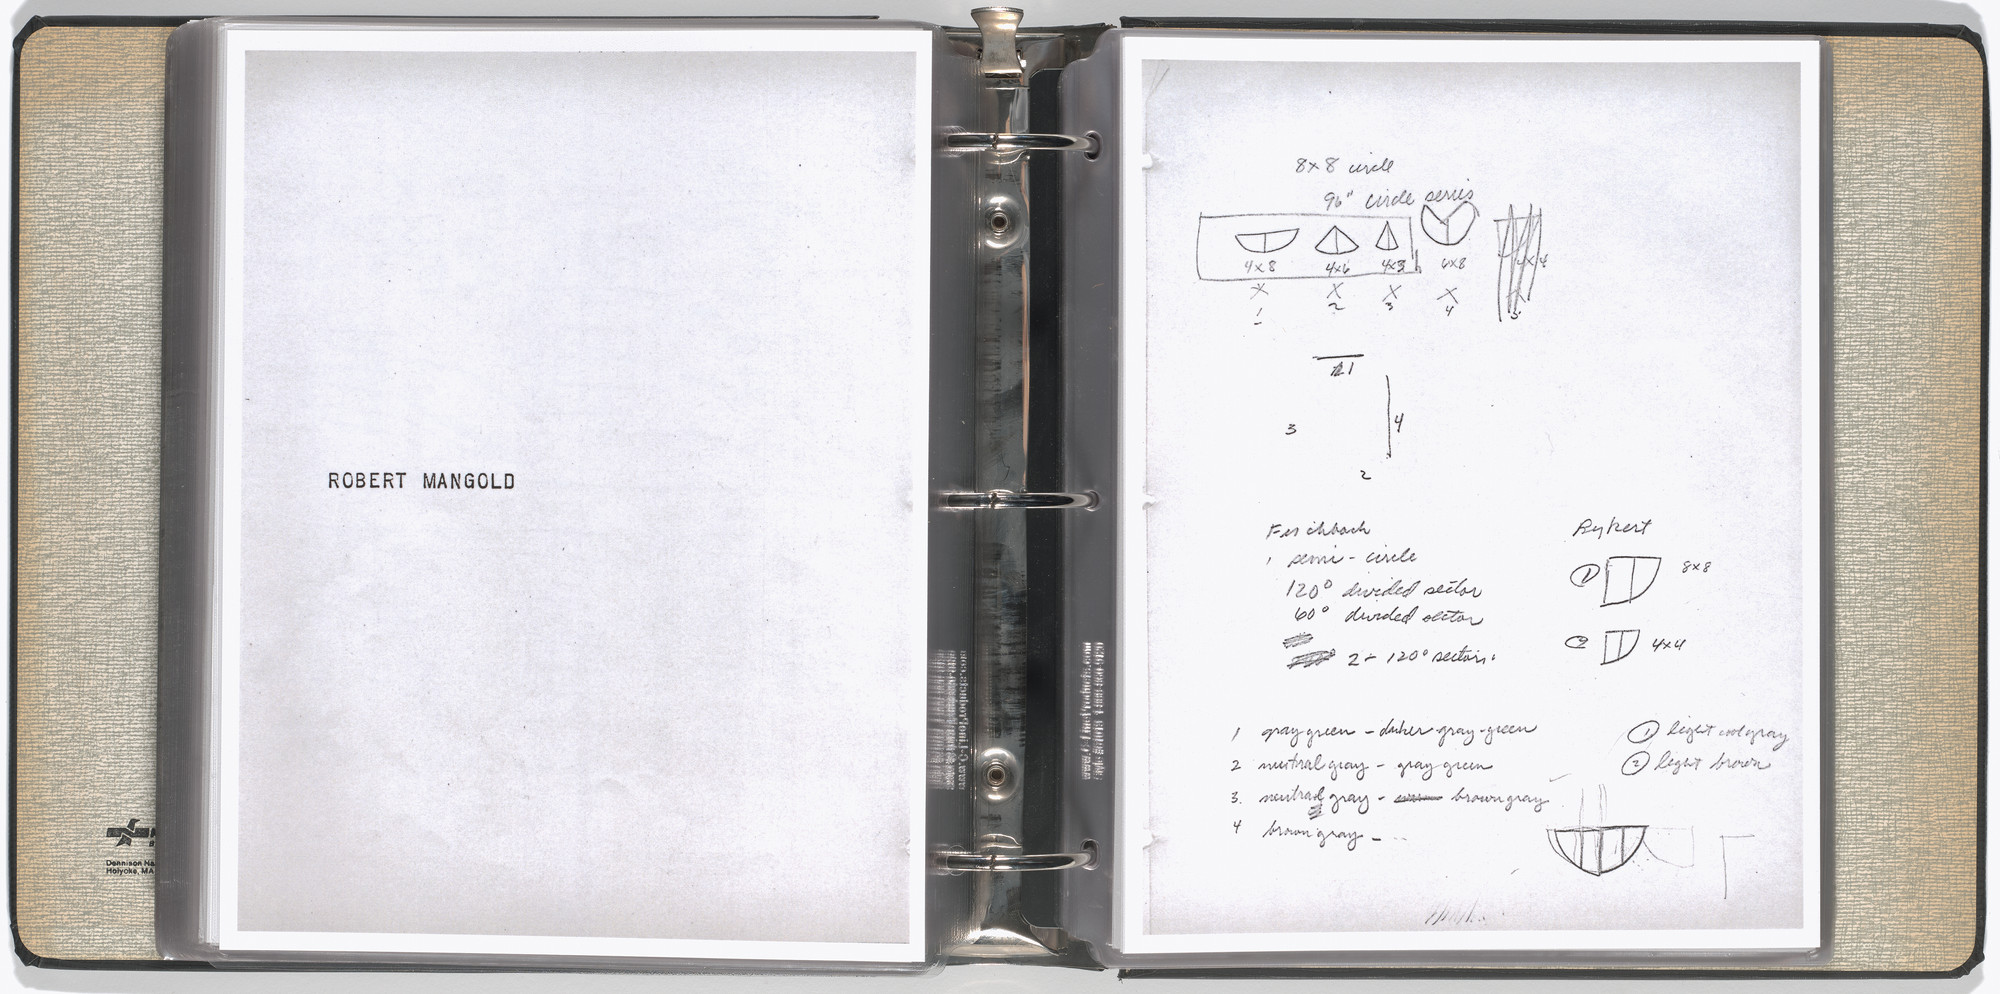 ROBERT MANGOLD
Dennison Na
Holyoke, MA
8x8 circle
96" circle series
4x8 4x6 4x3 6x8
1 2 3 4 5
1
3 4
2
Fischbach
1 semi-circle
120° divided sector
60° divided sector
2 - 120° sectors.
Bykert
1 8x8
2 4x4
1 gray green - darker gray-green
2 neutral gray - gray green
3. neutral gray - brown gray
4 brown gray -
1 light cool gray
2 light brown